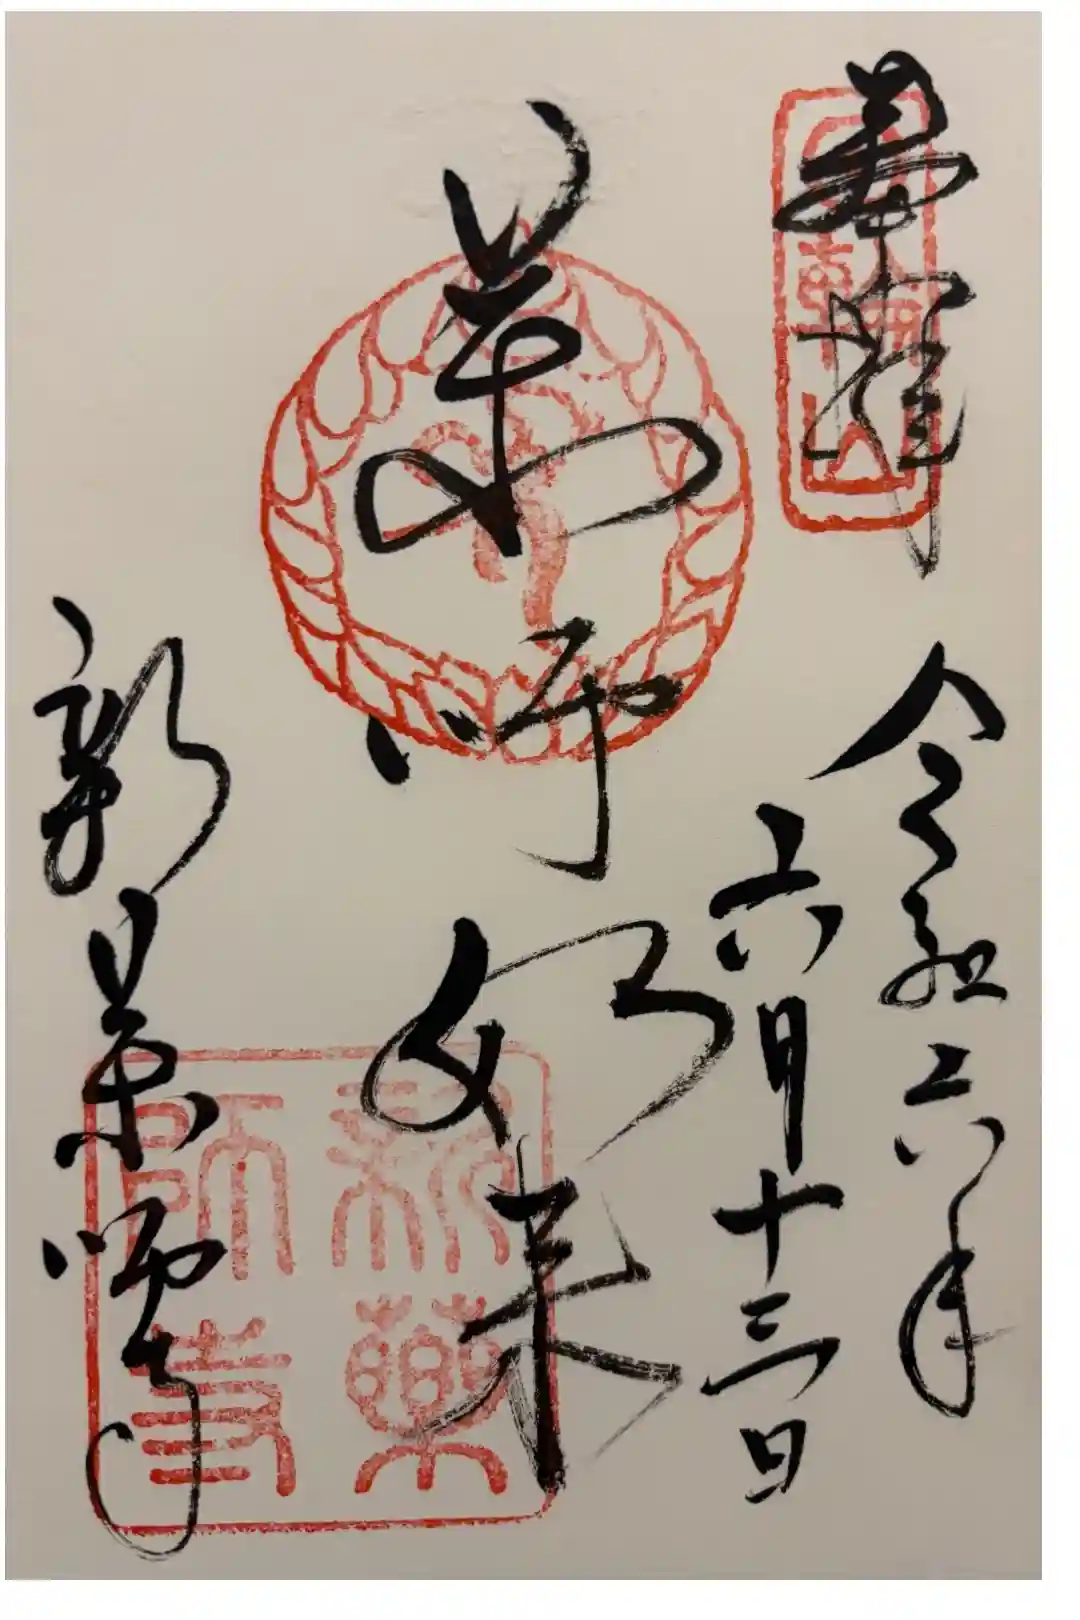 奉拝
令和六年
六月十三日
薬師如来
新薬師寺
新薬師寺